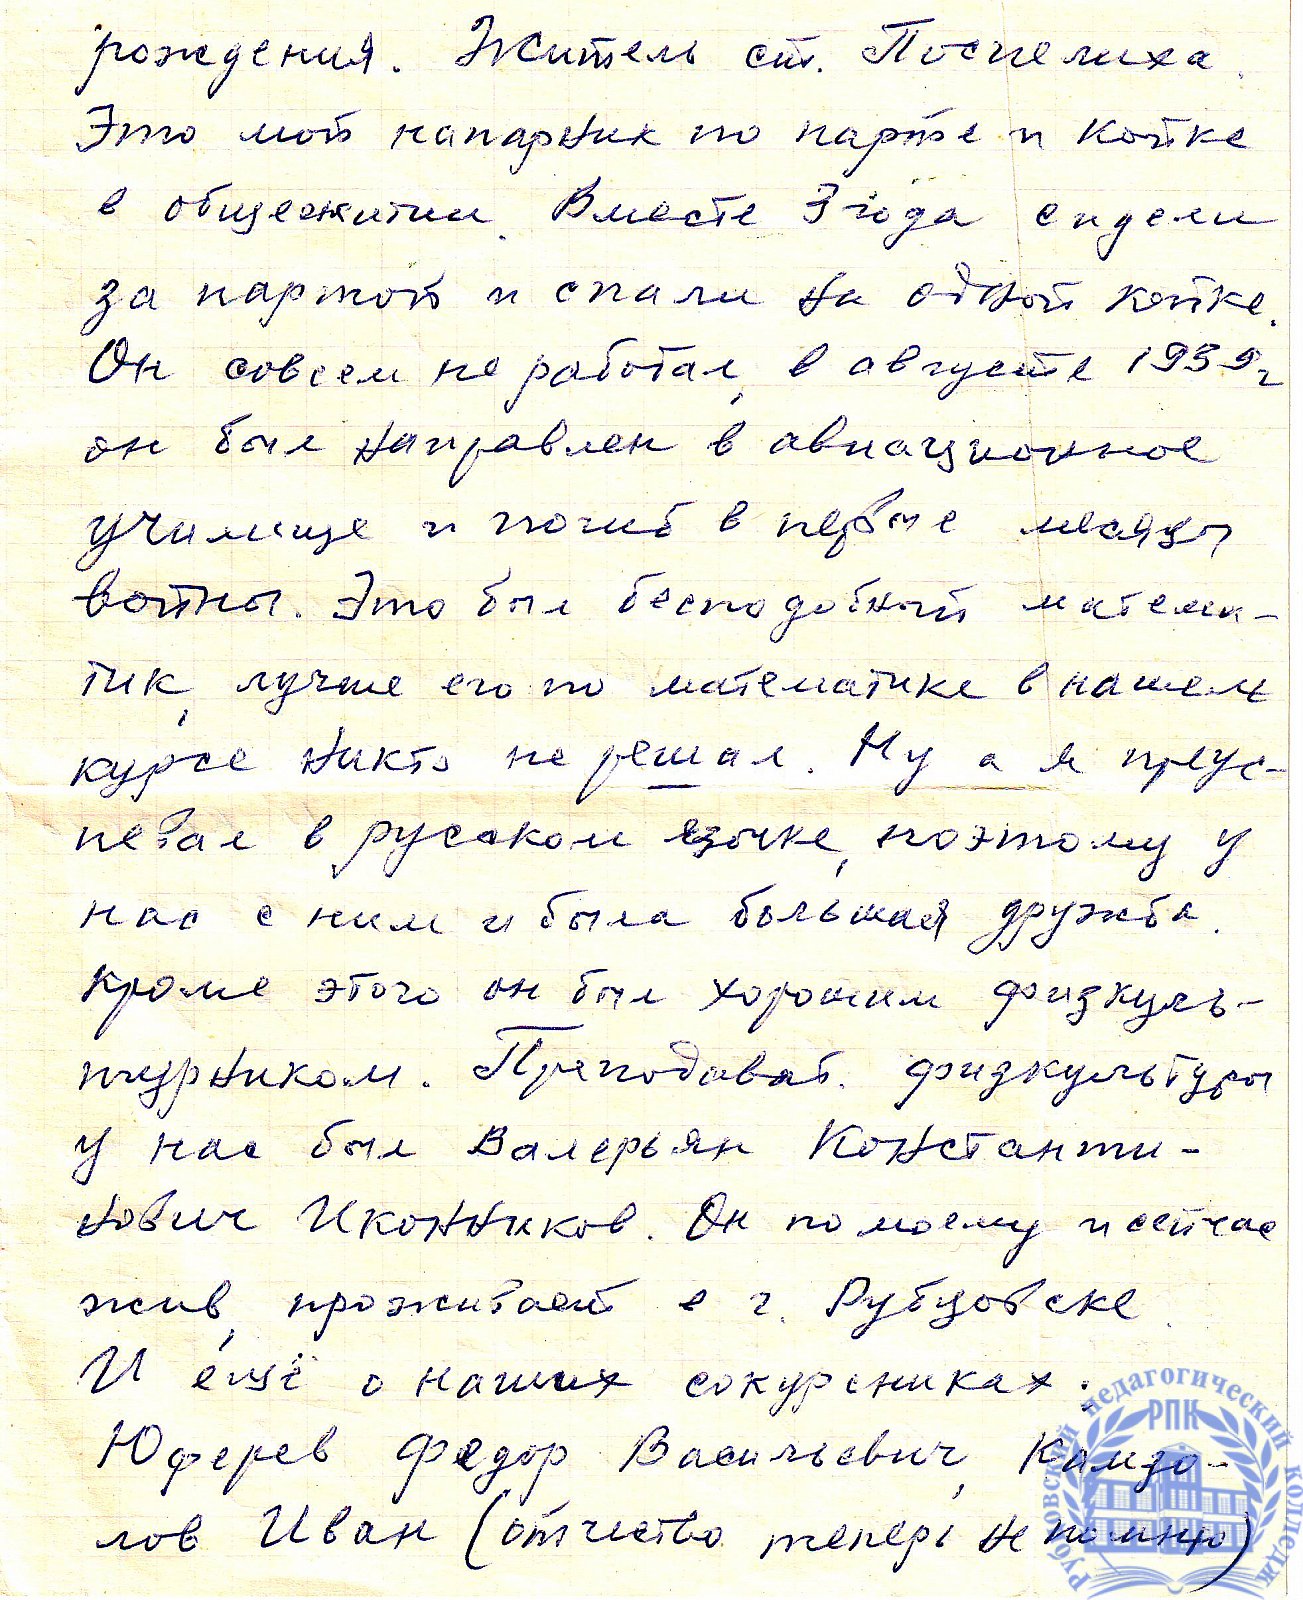 рождения. Житель ст. Поспелиха.
Это мой напарник по парте и койке
в общежитии. Вместе 3 года сидели
за партой и спали на одной койке.
Он совсем не работал, в августе 1939 г
он был направлен в авиационное
училище и погиб в первые месяцы
войны. Это был бесподобный матема-
тик, лучше его по математике в нашем
курсе никто не решал. Ну а я преус-
певал в русском языке, поэтому у
нас с ним и была большая дружба.
Кроме этого он был хорошим физкуль-
турником. Преподават. физкультуры
у нас был Валерьян Константи-
нович Иконников. Он по моему и сейчас
жив, проживает в г. Рубцовске.
И ещё о наших сокурсниках.
Юферев Федор Васильевич, Камзо-
лов Иван (отчество теперь не помню)
РУБЦОВСКИЙ педагогический колледж
РПК